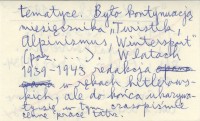 tematyce. Było kontynuacją
miesięcznika "Turistik,
Alpinismus, Wintersport"
(poz. ....). W latach
1939-1943 redakcja
w rękach hitlerow-
skich, ale do końca ukazywa-
ły się w tym czasopiśmie
cenne prace tatrz.